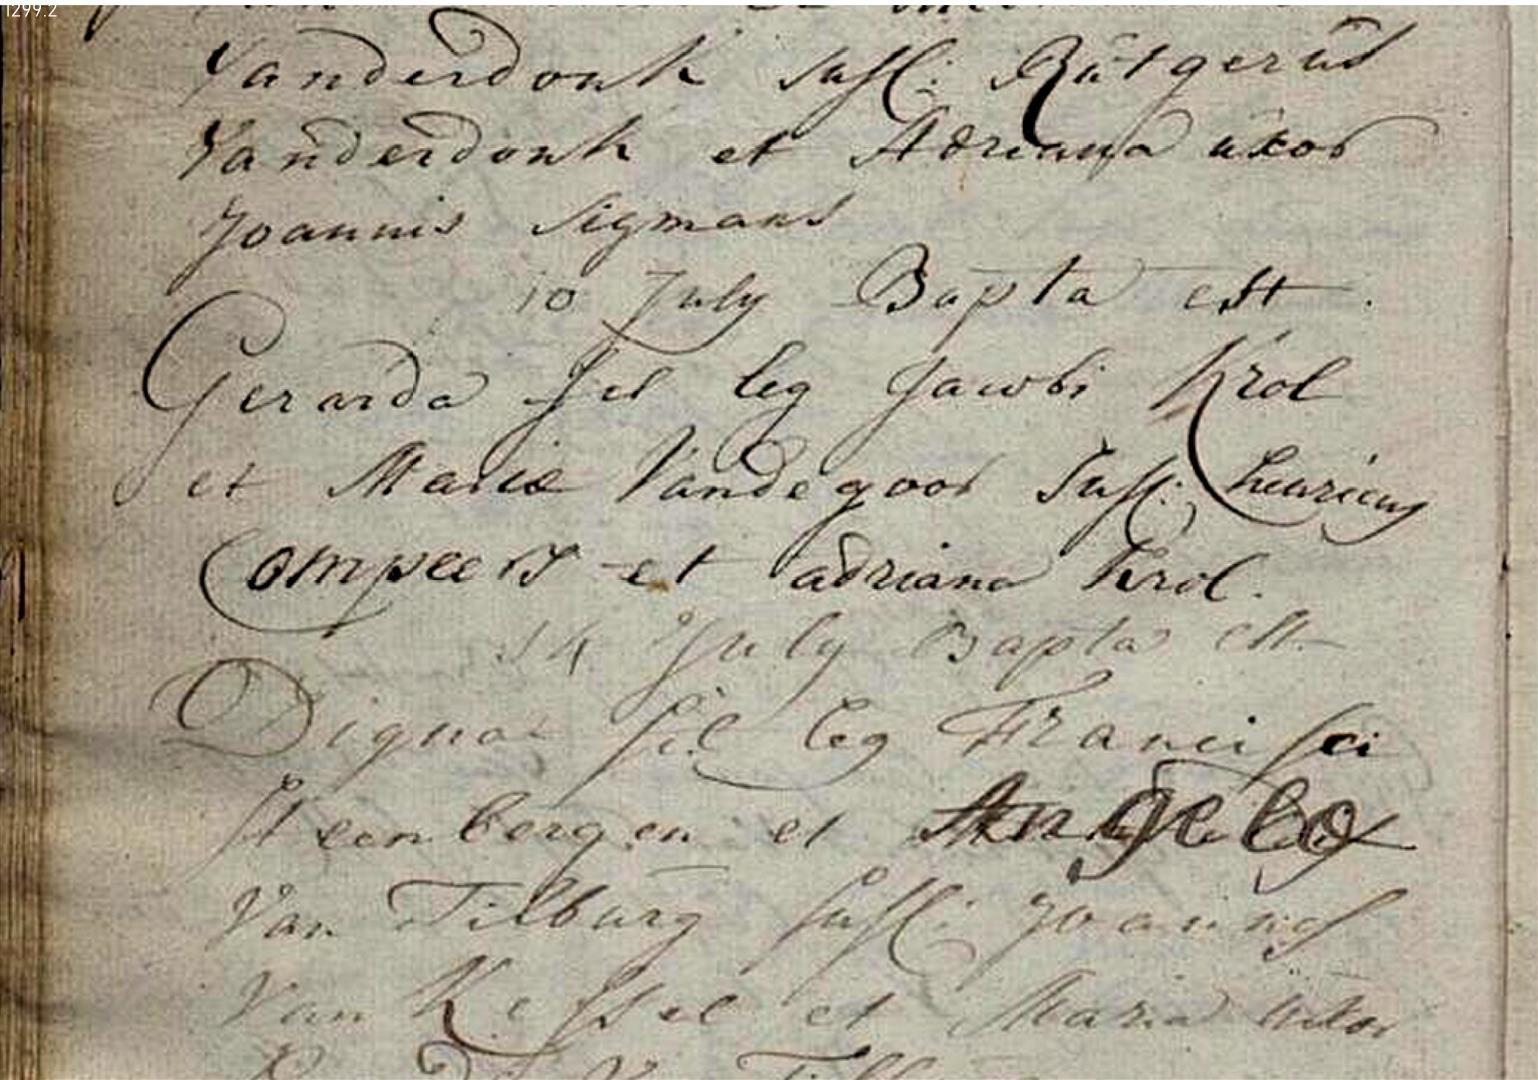 1299.2
Vanderdonk susc: Rutgerus
Vanderdonk et Adriana uxor
Joannis Sigmans
10 July Bapta est.
Gerarda fil leg Jacobi Krol
et Mariæ Vandegoor Susc: henricus
Compeers et adriana Krol.
14 July Bapta est
Digna fil leg Francisci
Steenbergen et Angela
Van Tilburg susc: Joannes
Van Kessel et Maria uxor